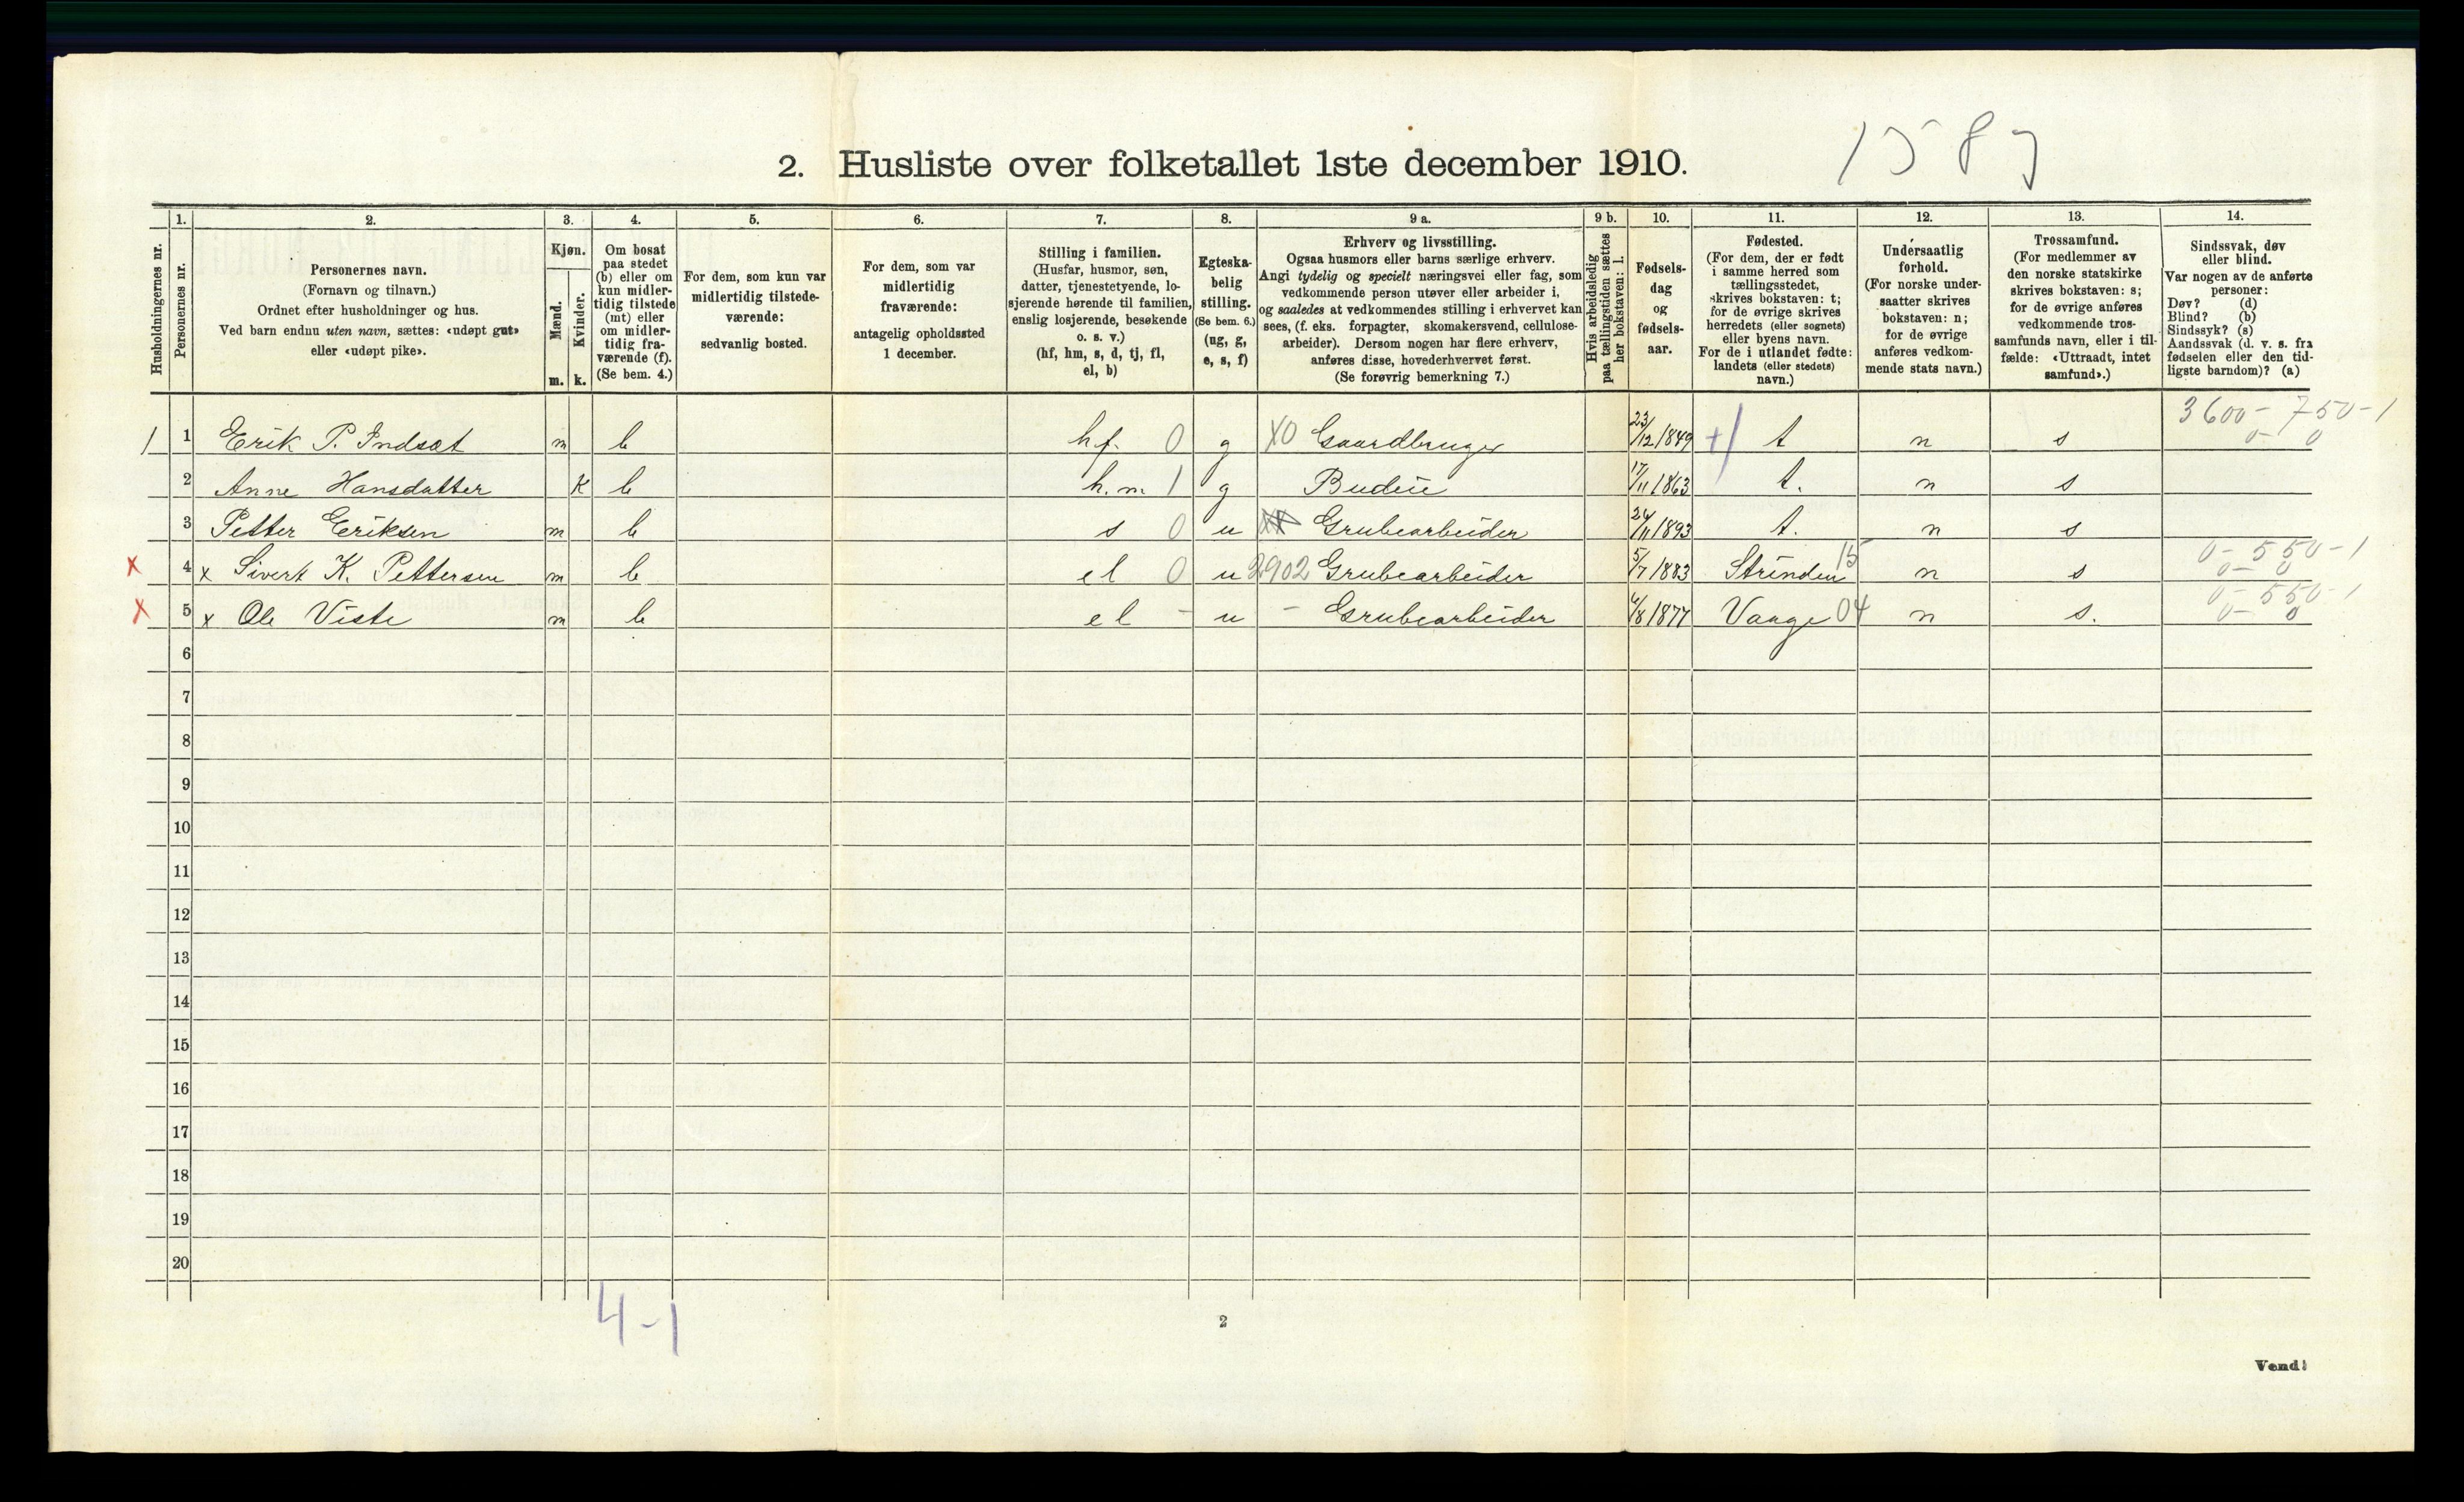 1587
2. Husliste over folketallet 1ste december 1910.
Husholdningernes nr.
1. Personernes nr.
2. Personernes navn. (Fornavn og tilnavn.) Ordnet efter husholdninger og hus. Ved barn endnu uten navn, sættes: «udøpt gut» eller «udøpt pike».
3. Kjøn. Mænd. m. Kvinder. k.
4. Om bosat paa stedet (b) eller om kun midlertidig tilstede (mt) eller om midlertidig fraværende (f). (Se bem. 4.)
5. For dem, som kun var midlertidig tilstedeværende: sedvanlig bosted.
6. For dem, som var midlertidig fraværende: antagelig opholdssted 1 december.
7. Stilling i familien. (Husfar, husmor, søn, datter, tjenestetyende, losjerende hørende til familien, enslig losjerende, besøkende o. s. v.) (hf, hm, s, d, tj, fl, el, b)
8. Egteskabelig stilling. (Se bem. 6.) (ug, g, e, s, f)
9 a. Erhverv og livsstilling. Ogsaa husmors eller barns særlige erhverv. Angi tydelig og specielt næringsvei eller fag, som vedkommende person utøver eller arbeider i, og saaledes at vedkommendes stilling i erhvervet kan sees, (f. eks. forpagter, skomakersvend, cellulosearbeider). Dersom nogen har flere erhverv, anføres disse, hovederhvervet først. (Se forøvrig bemerkning 7.)
9 b. Hvis arbeidsledig paa tællingstiden sættes her bokstaven: l.
10. Fødselsdag og fødselsaar.
11. Fødested. (For dem, der er født i samme herred som tællingsstedet, skrives bokstaven: t; for de øvrige skrives herredets (eller sognets) eller byens navn. For de i utlandet fødte: landets (eller stedets) navn.)
12. Undersaatlig forhold. (For norske undersaatter skrives bokstaven: n; for de øvrige anføres vedkommende stats navn.)
13. Trossamfund. (For medlemmer av den norske statskirke skrives bokstaven: s; for de øvrige anføres vedkommende trossamfunds navn, eller i tilfælde: «Uttraadt, intet samfund».)
14. Sindssvak, døv eller blind. Var nogen av de anførte personer: Døv? (d) Blind? (b) Sindssyk? (s) Aandssvak (d. v. s. fra fødselen eller den tidligste barndom)? (a)
3600 - 750 - 1
0 - 0
1 1 Erik P. Indsæt m b hf. 0 g X0 Gaardbruger 23/12 1849 t n s
2 Anne Hansdatter K b h.m 1 g Budeie 17/11 1863 t. n s
3 Petter Eriksen m b s 0 u Grubearbeider 24/11 1893 t. n s
x 4 x Sivert K. Pettersen m b el 0 u 2902 Grubearbeider 5/7 1883 Strinden 15 n s 0 - 550 - 1
0 - 0
x 5 x Ole Viste m b el - u - Grubearbeider 6/8 1877 Vaage 04 n s. 0 - 550 - 1
0 - 0
6
7
8
9
10
11
12
13
14
15
16
17
18
19
20
4-1
2
Vend!